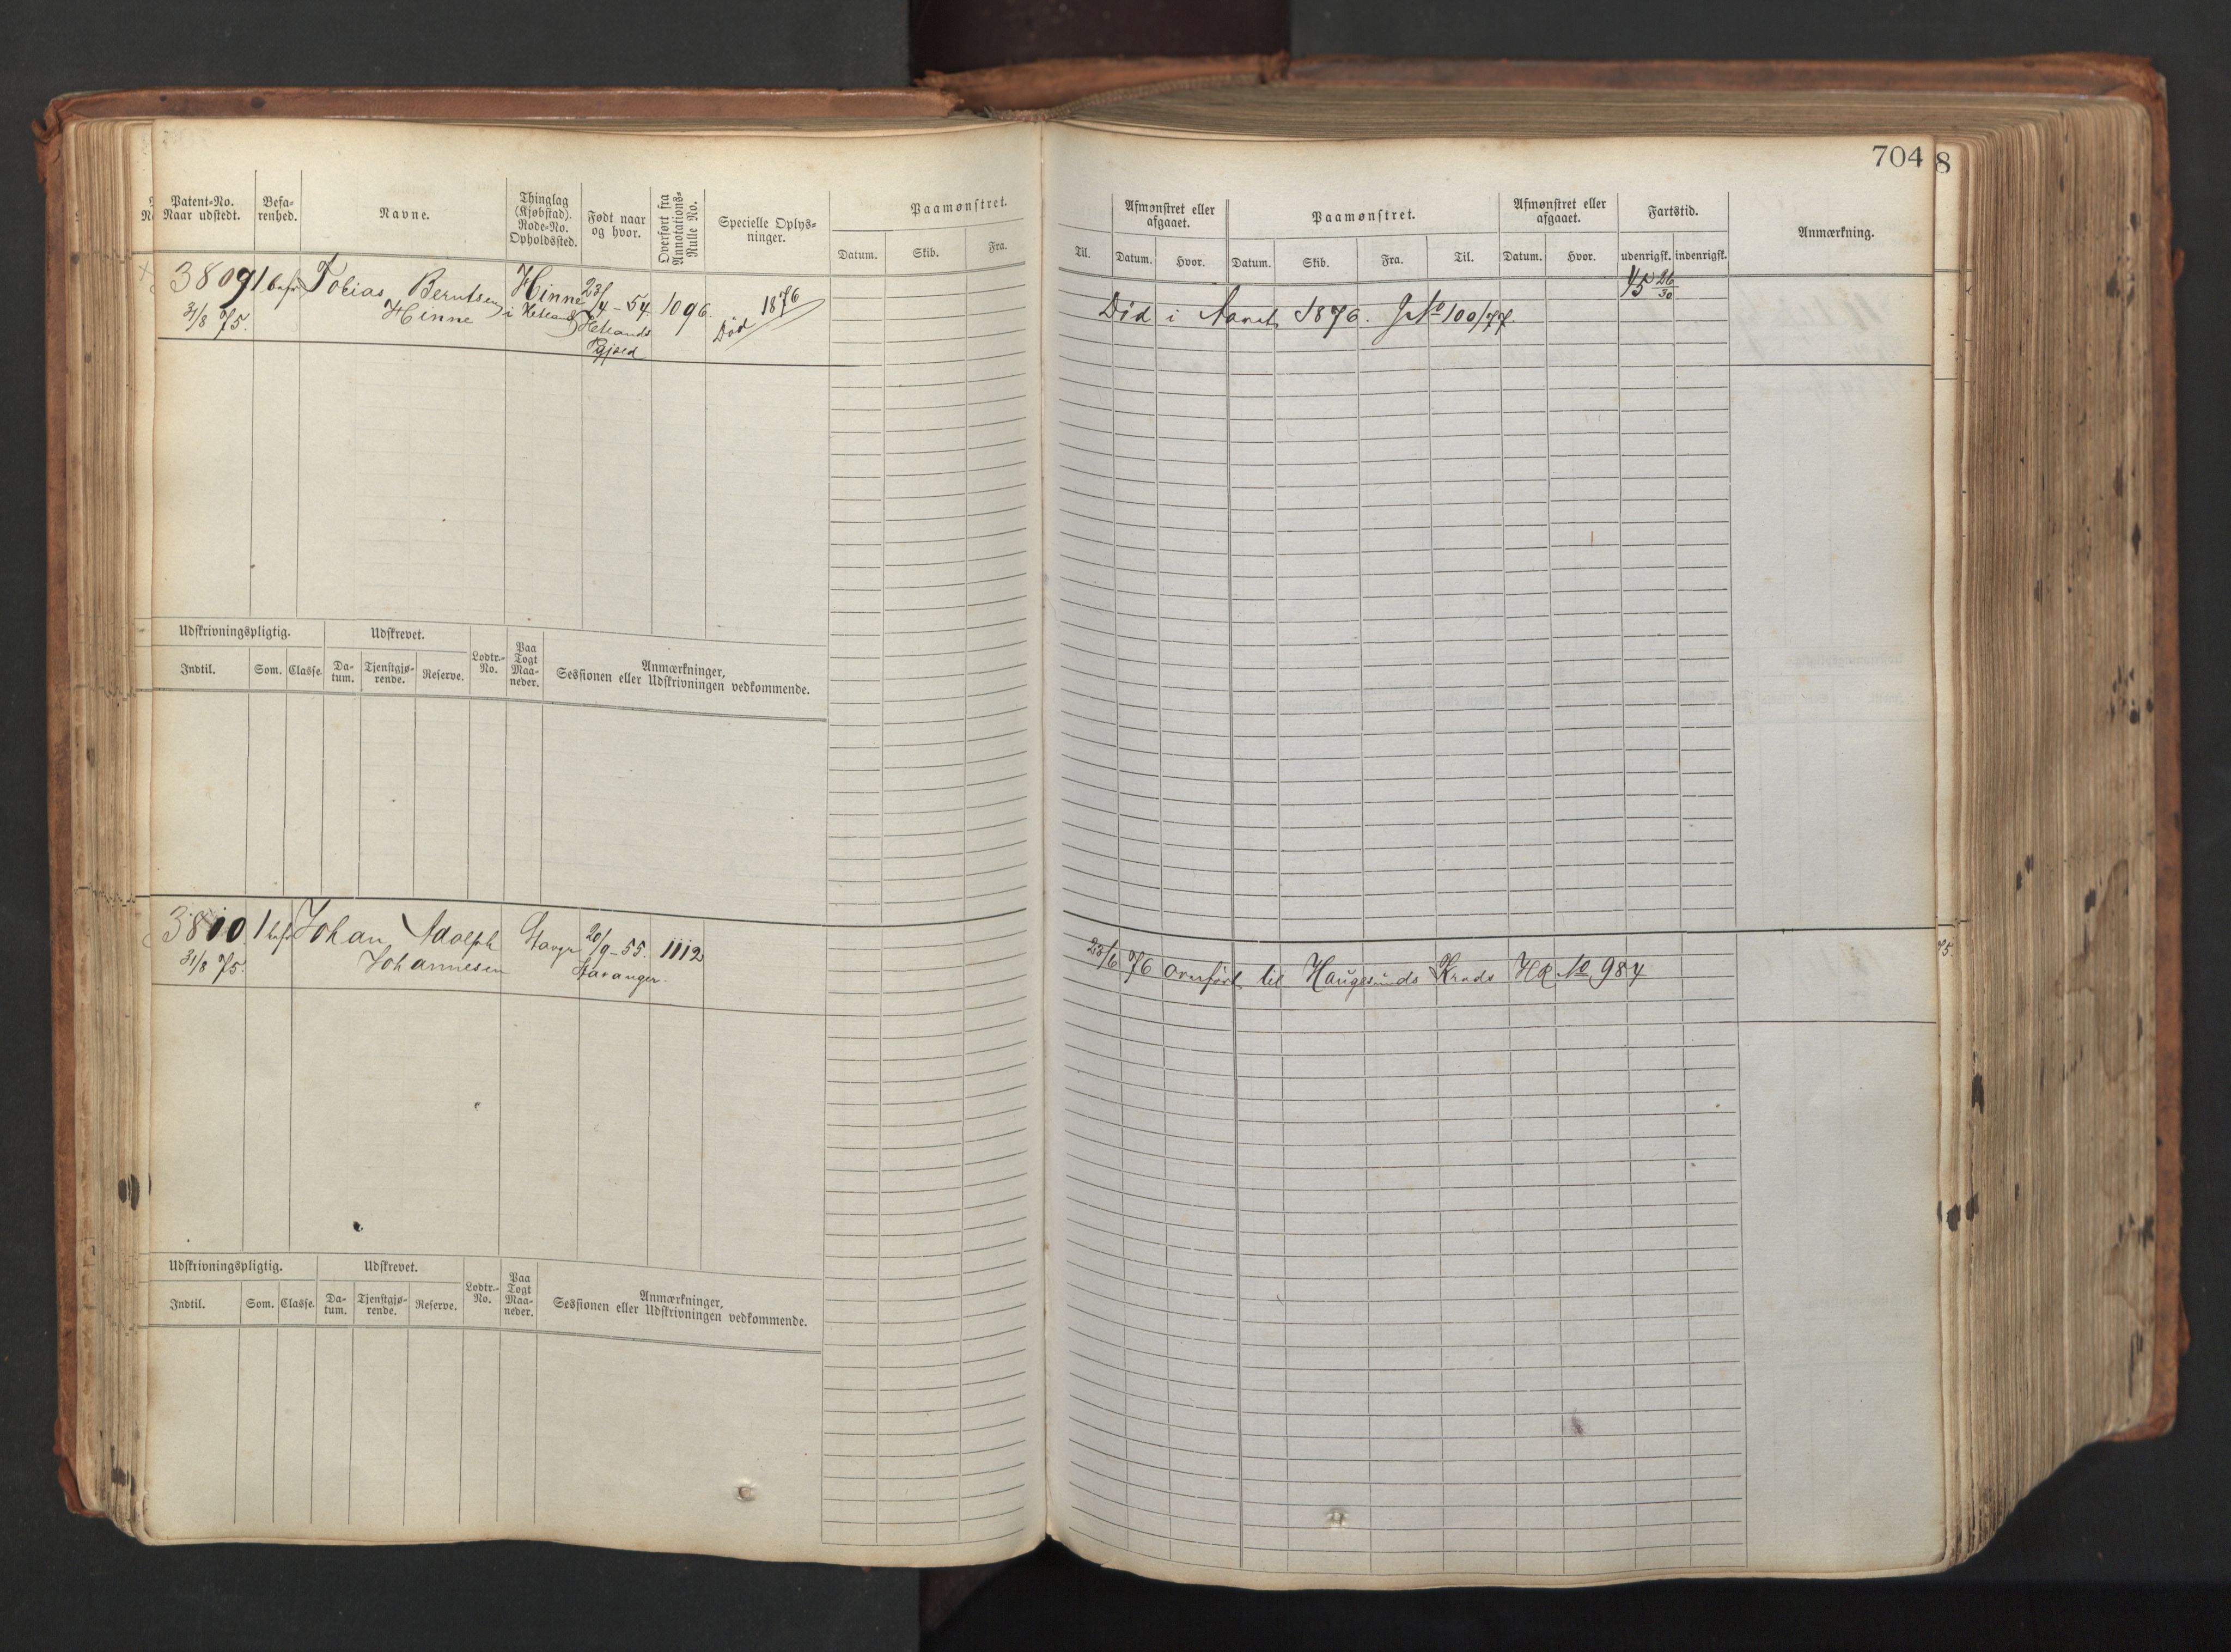 704
8
Patent-No. Naar udstedt.
Befa-renhed.
Navne.
Thinglag (Kjøbstad). Rode-No. Opholdssted.
Født naar og hvor.
Overført fra Annotations-Rulle No.
Specielle Oplys-ninger.
Paamønstret.
Datum. Skib. Fra.
Til.
Afmønstret eller afgaaet.
Datum. Hvor.
Paamønstret.
Datum. Skib. Fra. Til.
Afmønstret eller afgaaet.
Datum. Hvor.
Fartstid.
udenrigsk. indenrigsk.
Anmærkning.
3809 1 Tobias Berntsen Hinne 23/4-54 1096. Død 1876
31/8 75. Hinne i Hetland Hetlands
Pgjæld
45 26/30
Død i Aaret 1876. J No 100/77.
Udskrivningspligtig. Udskrevet. Lodtr.-No. Paa Togt Maa-neder. Anmærkninger, Sessionen eller Udskrivningen vedkommende.
Indtil. Som. Classe. Da-tum. Tjenstgjø-rende. Reserve.
3810 1 Johan Adolph Stavgr 20/9-55. 1112
31/8 75. Johannesen Stavanger.
23/6 76 overført til Haugesunds Krads HR No 984
75.
Udskrivningspligtig. Udskrevet. Lodtr.-No. Paa Togt Maa-neder. Anmærkninger, Sessionen eller Udskrivningen vedkommende.
Indtil. Som. Classe. Da-tum. Tjenstgjø-rende. Reserve.